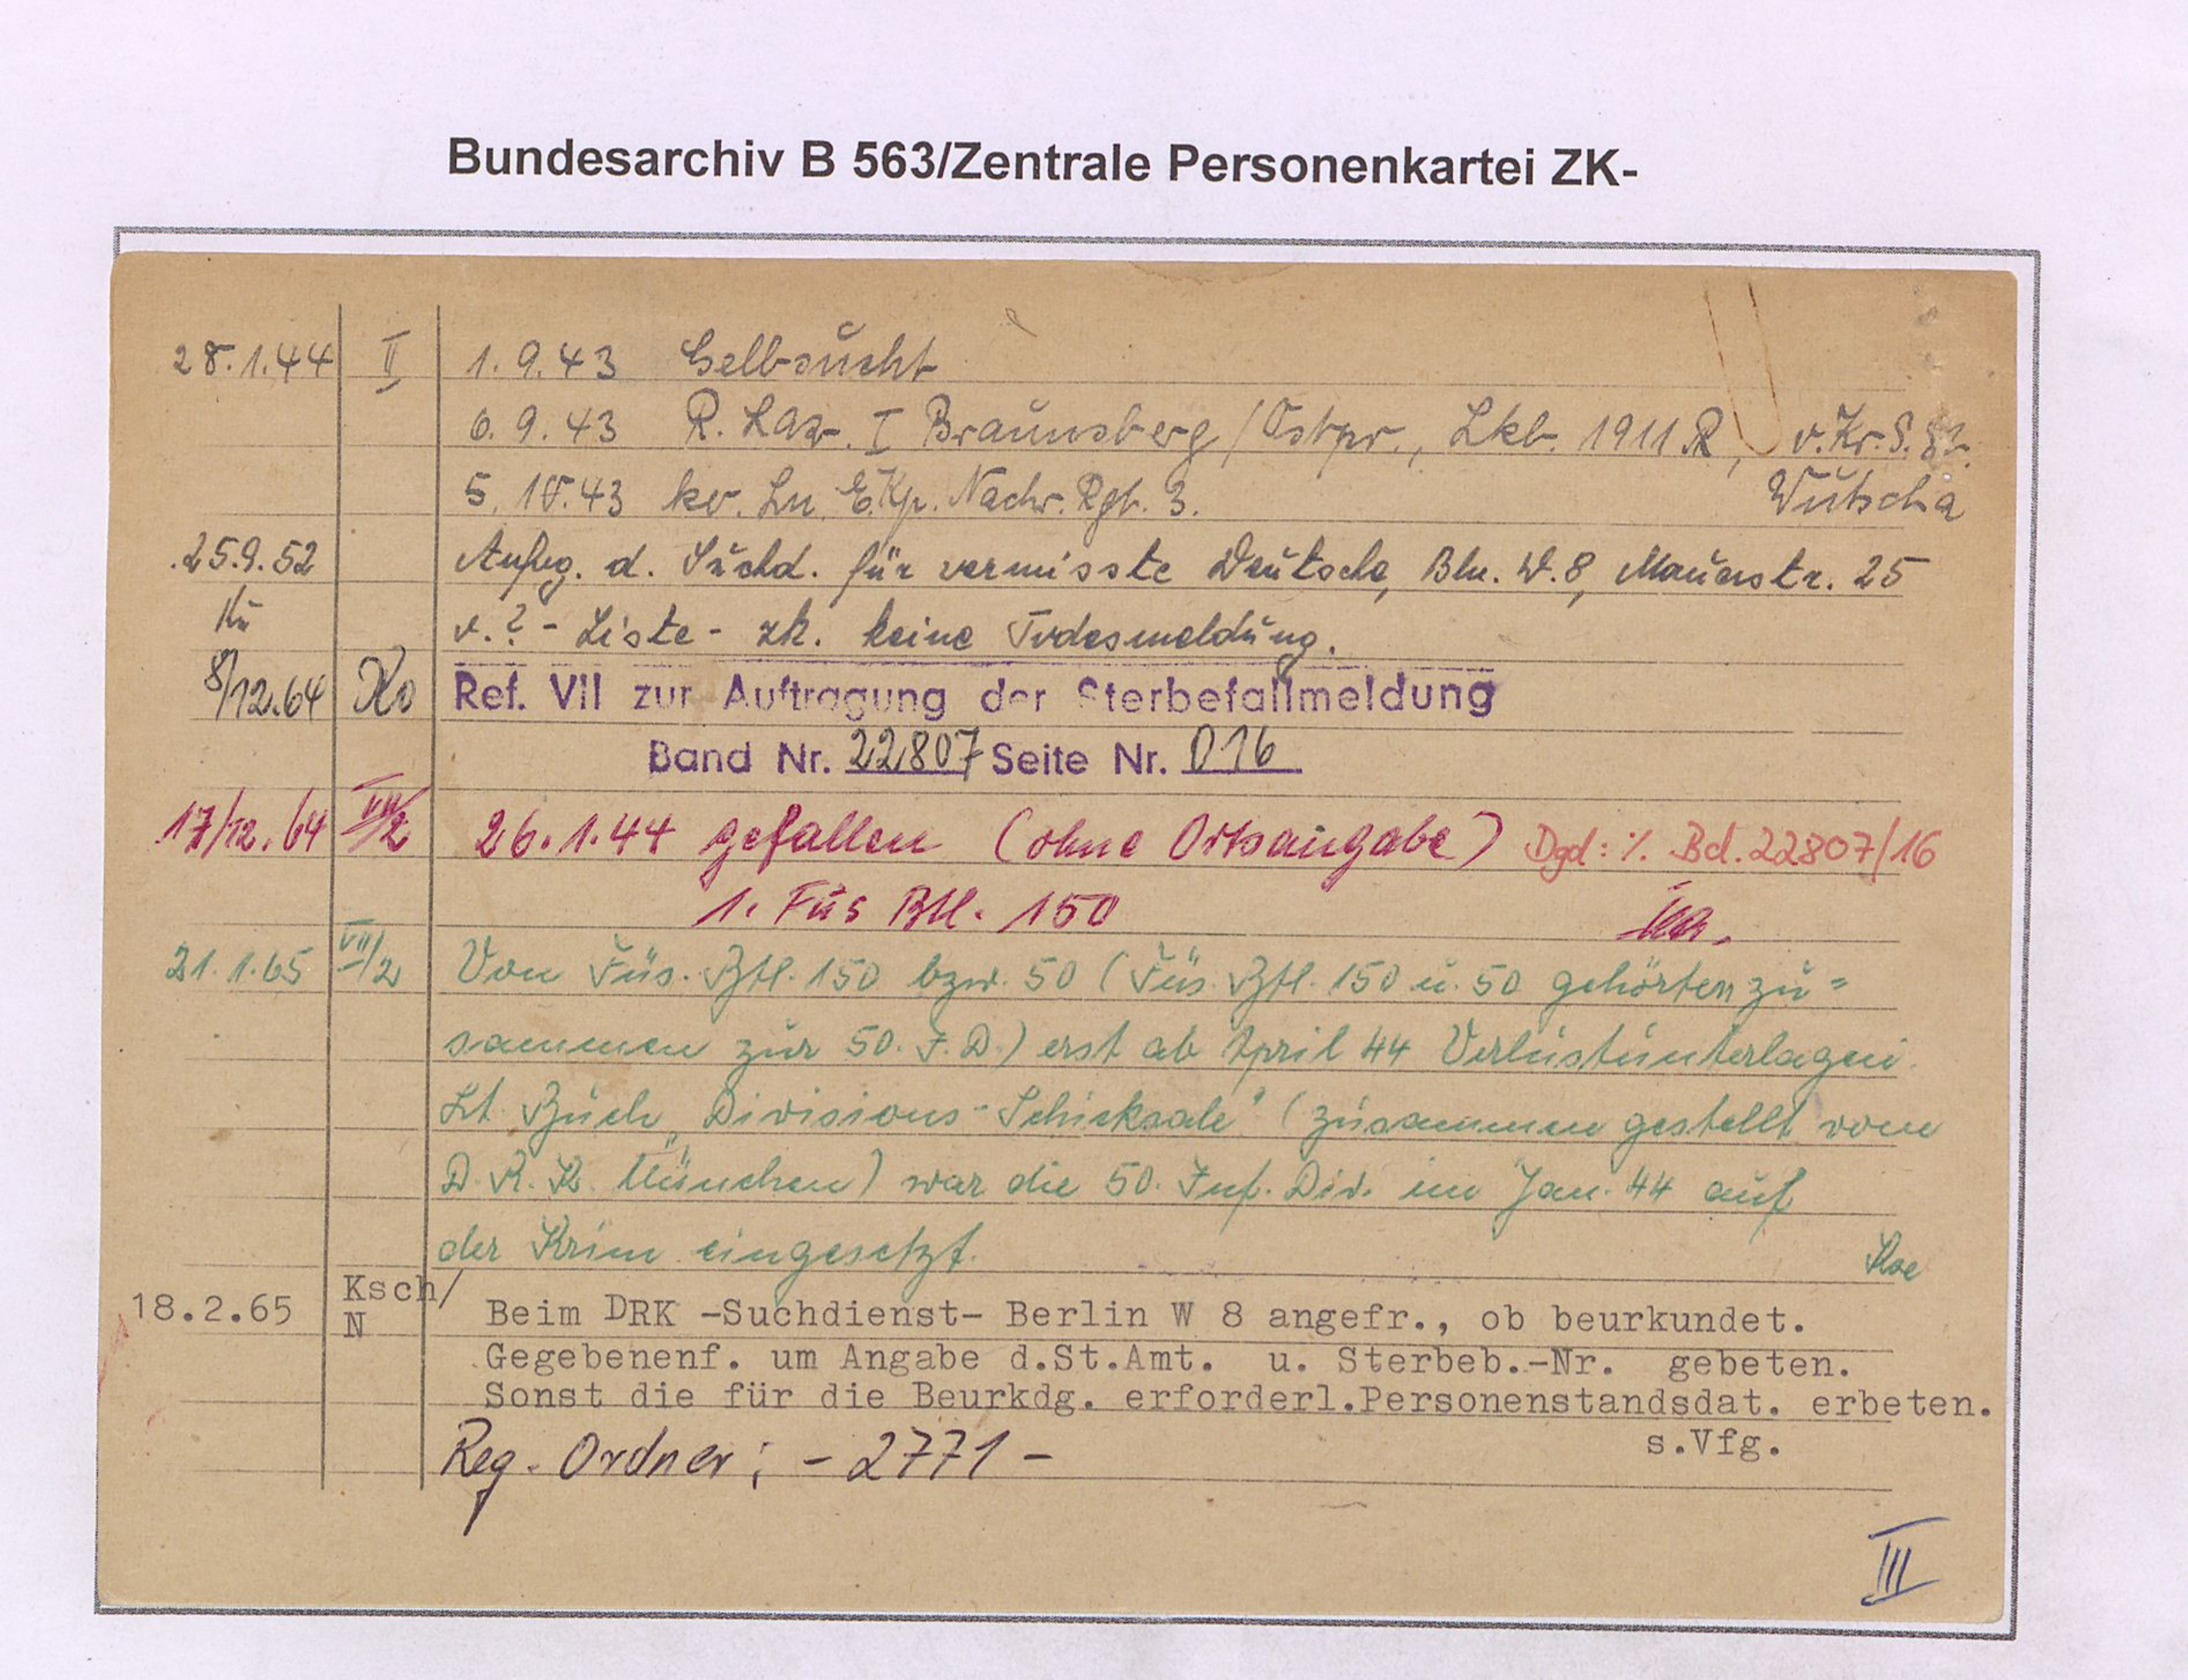 Bundesarchiv B 563/Zentrale Personenkartei ZK-
28.1.44 II 1.9.43 Gelbsucht
6.9.43 R. Laz. I Braunsberg/Ostpr., Lkb. 1911 R, v. Kr. S.
5.10.43 kv. Ln. E. Kp. Nachr. Rgt. 3. Wutscha
25.9.52 Anfrg. d. Suchd. für vermisste Deutsche, Bln. W. 8, Mauerstr. 25
Kü v. ? - Liste - zk. keine Todesmeldung.
8/12.64 Ko Ref. VII zur Auftragung der Sterbefallmeldung
Band Nr. 22807 Seite Nr. 016
17/12.64 VII/2 26.1.44 gefallen (ohne Ortsangabe) Dgd: %. Bd. 22807/16
1. Füs Btl. 150
21.1.65 VII/2 Von Füs. Btl. 150 bzw. 50 (Füs. Btl. 150 u. 50 gehörten zu=
sammen zur 50. I.D.) erst ab April 44 Verlustunterlagen.
Lt. Buch „Divisions-Schicksale" (zusammen gestellt vom
D.R.K. München) war die 50. Inf. Div. im Jan. 44 auf
der Krim eingesetzt.
18.2.65 Ksch/
N Beim DRK -Suchdienst- Berlin W 8 angefr., ob beurkundet.
Gegebenenf. um Angabe d.St.Amt. u. Sterbeb.-Nr. gebeten.
Sonst die für die Beurkdg. erforderl.Personenstandsdat. erbeten.
s.Vfg.
Reg. Ordner: - 2771 -
III